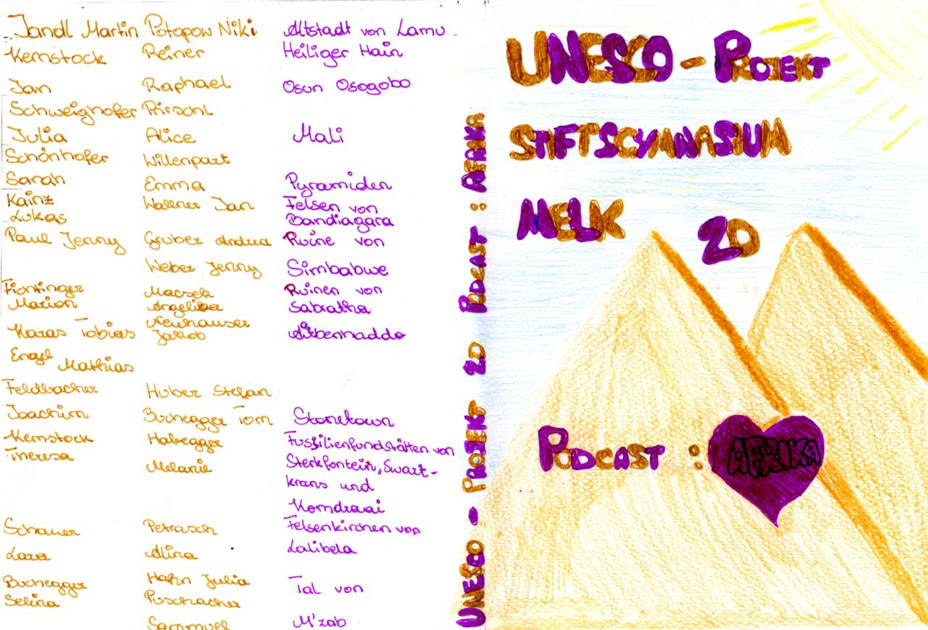 Jandl Martin Potopow Niki Altstadt von Lamu
Kernstock Reiner Heiliger Hain
Jan Raphael Osun Osogobo
Schweighofer Pirschl
Julia Alice Mali
Schönhofer Willenpart
Sarah Emma Pyramiden
Kainz Wallner Jan Felsen von
Lukas Bandiagara
Paul Jenny Gruber Andrea Ruine von
Weber Jenny Simbabwe
Macsek Ruinen von
Marion Angelika Sabratha
Karas Tobias Neuhauser
Jakob
Engel
Mathias
Feldbacher Huber Stefan
Joachim Buchegger Tom Stonetown
Kernstock Habegger Fussilienfundstätten von
Theresa Melanie Sterkfontein, Swart-
krans und
Komdraai
Schauer Petrasch Felsenkirchen von
Lara Alina Lalibela
Buchegger Hahn Julia Tal von
Selina Puschacher
Sammuel M'zab
UNESCO - PROJEKT 2D PODCAST : AFRIKA
UNESCO - PROJEKT
STIFTSGYMNASIUM
MELK 2D
PODCAST : AFRIKA